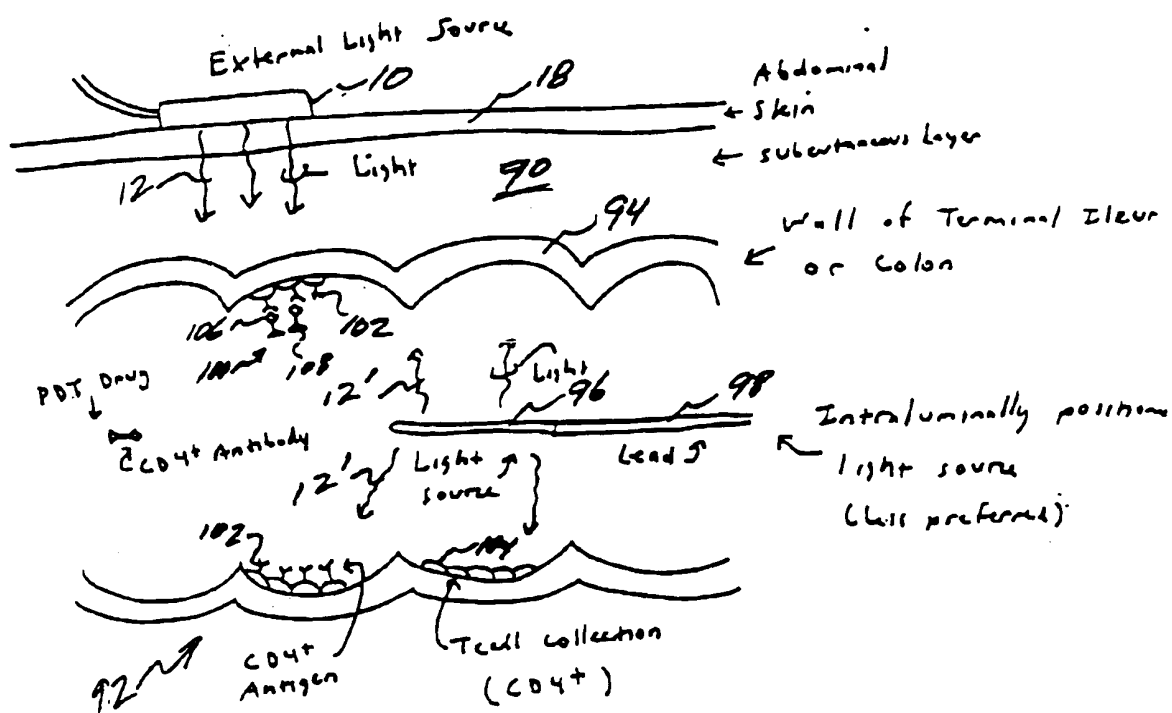 External Light Source
10
18
Abdominal
Skin
subcutaneous Layer
12
Light
90
94
Wall of Terminal Ileum
or Colon
106
102
108
PDT Drug
12'
Light
96
98
CD4+ Antibody
12'
Light
source
Lead
Intraluminally positione
light source
(Less preferred)
102
104
92
CD4+
Antigen
Tcell collection
(CD4+)